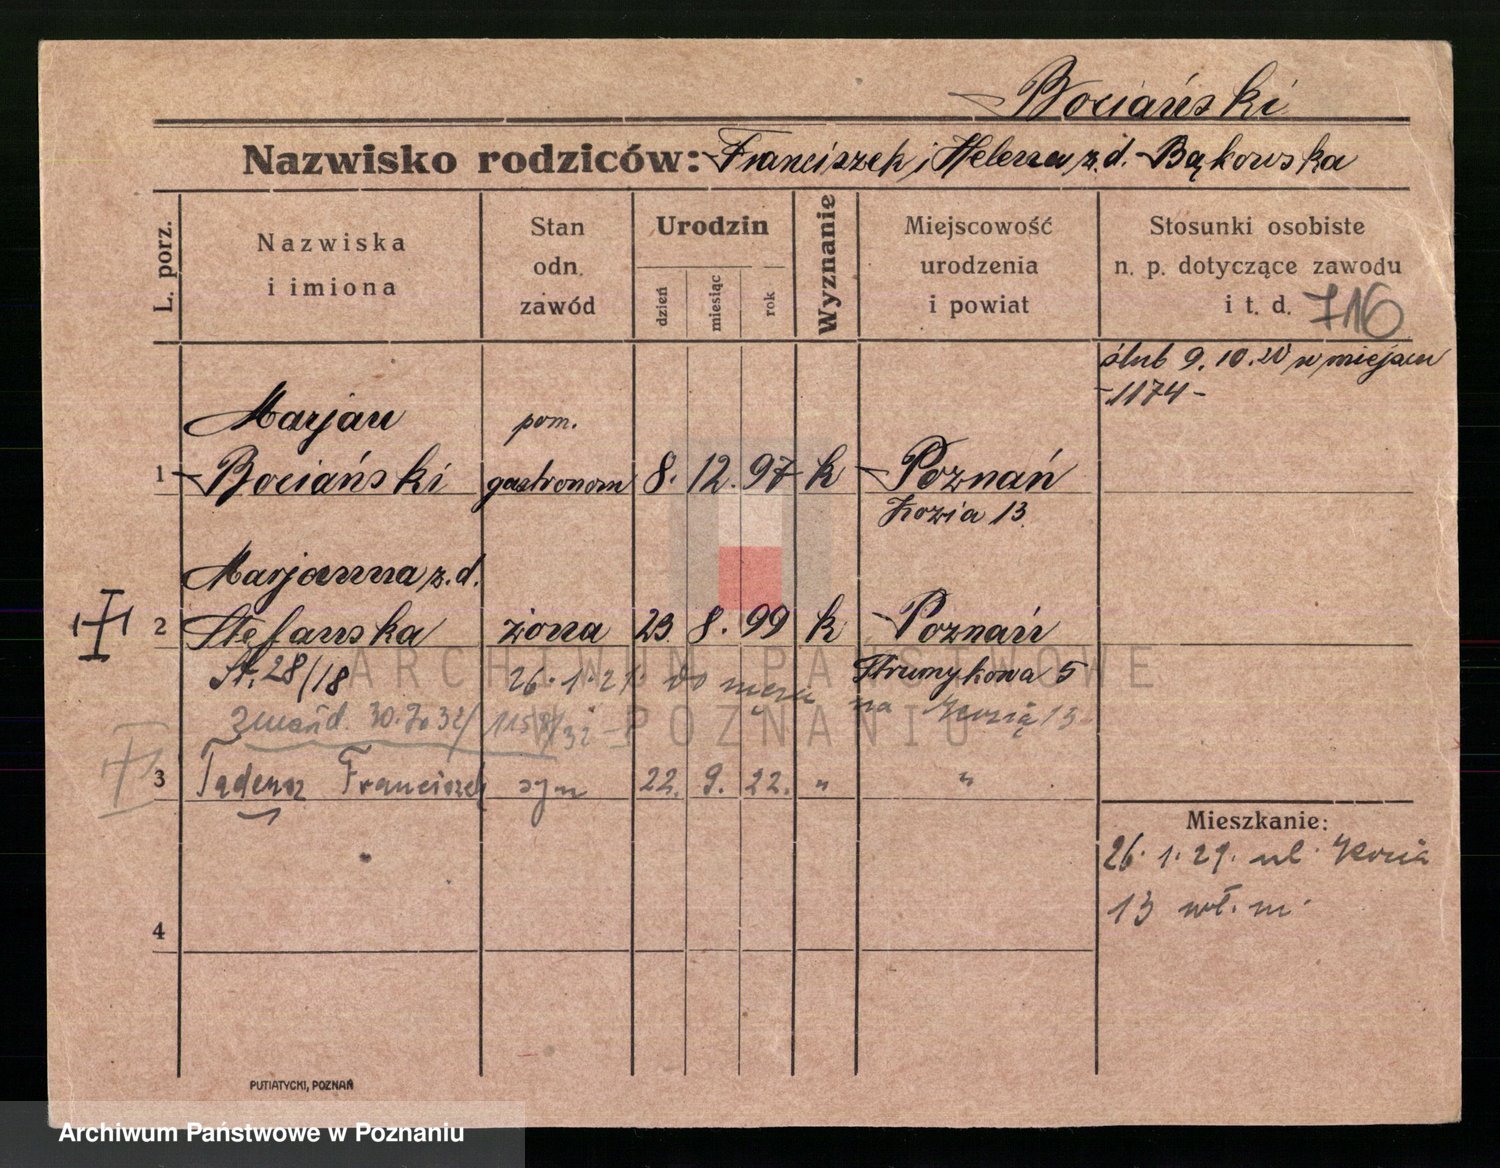 Bociański
Nazwisko rodziców: Franciszek i Helena z.d. Bąkowska
L. porz.
Nazwiska
i imiona
Stan
odn.
zawód
Urodzin
dzień
miesiąc
rok
Wyznanie
Miejscowość
urodzenia
i powiat
Stosunki osobiste
n. p. dotyczące zawodu
i t. d. 716
ślub 9.10.20 w miejscu
-1174-
Marjan pom.
1 Bociański gastronom 8. 12. 97 k Poznań
Kozia 13
Marjanna z.d.
2 Stefańska żona 23 8. 99 k Poznań
St. 28/18 26.1.21. do męża Strumykowa 5
na Kozią 13
30. 32/
3 Tadeusz Franciszek syn 22. 9. 22. " "
Mieszkanie:
26.1.29. ul. Kozia
13 wł. m.
4
PUTIATYCKI, POZNAŃ
ARCHIWUM PAŃSTWOWE
W POZNANIU
Archiwum Państwowe w Poznaniu